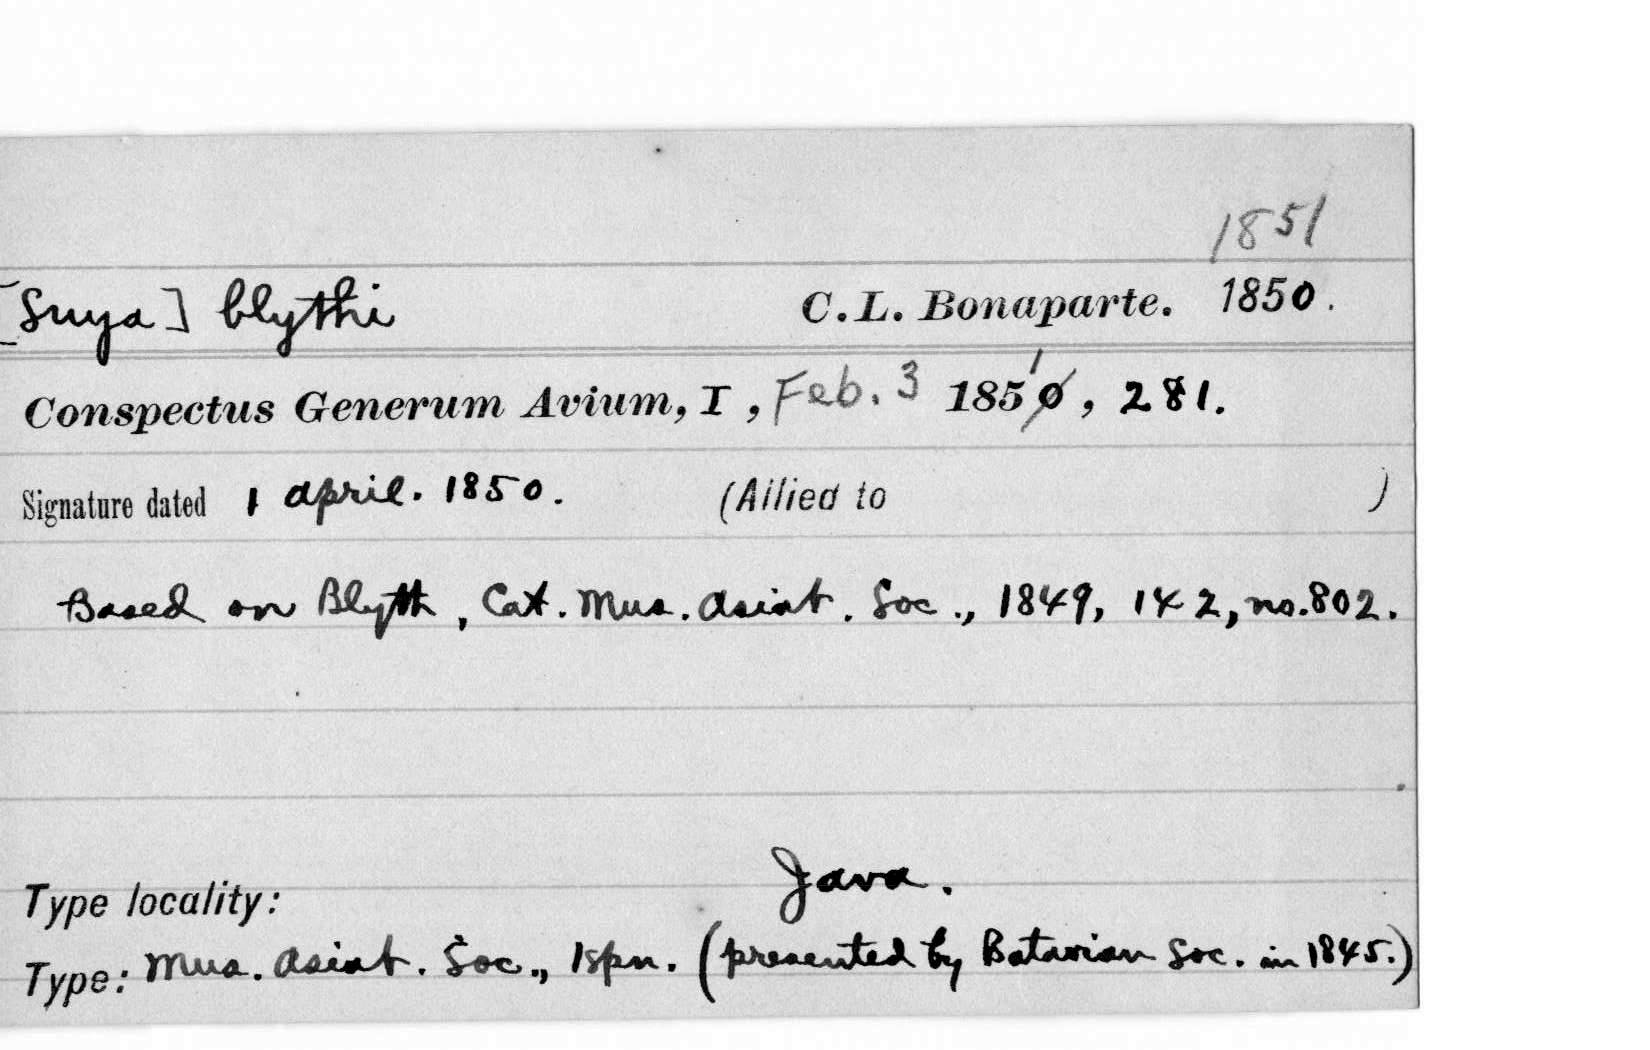 1851
[Suya] blythi C.L. Bonaparte. 1850.
Conspectus Generum Avium, I, Feb. 3 1851, 281.
Signature dated 1 April. 1850. (Allied to )
Based on Blyth, Cat. Mus. Asiat. Soc., 1849, 142, no. 802.
Type locality: Java.
Type: Mus. Asiat. Soc., 1spn. (presented by Batavian Soc. in 1845.)